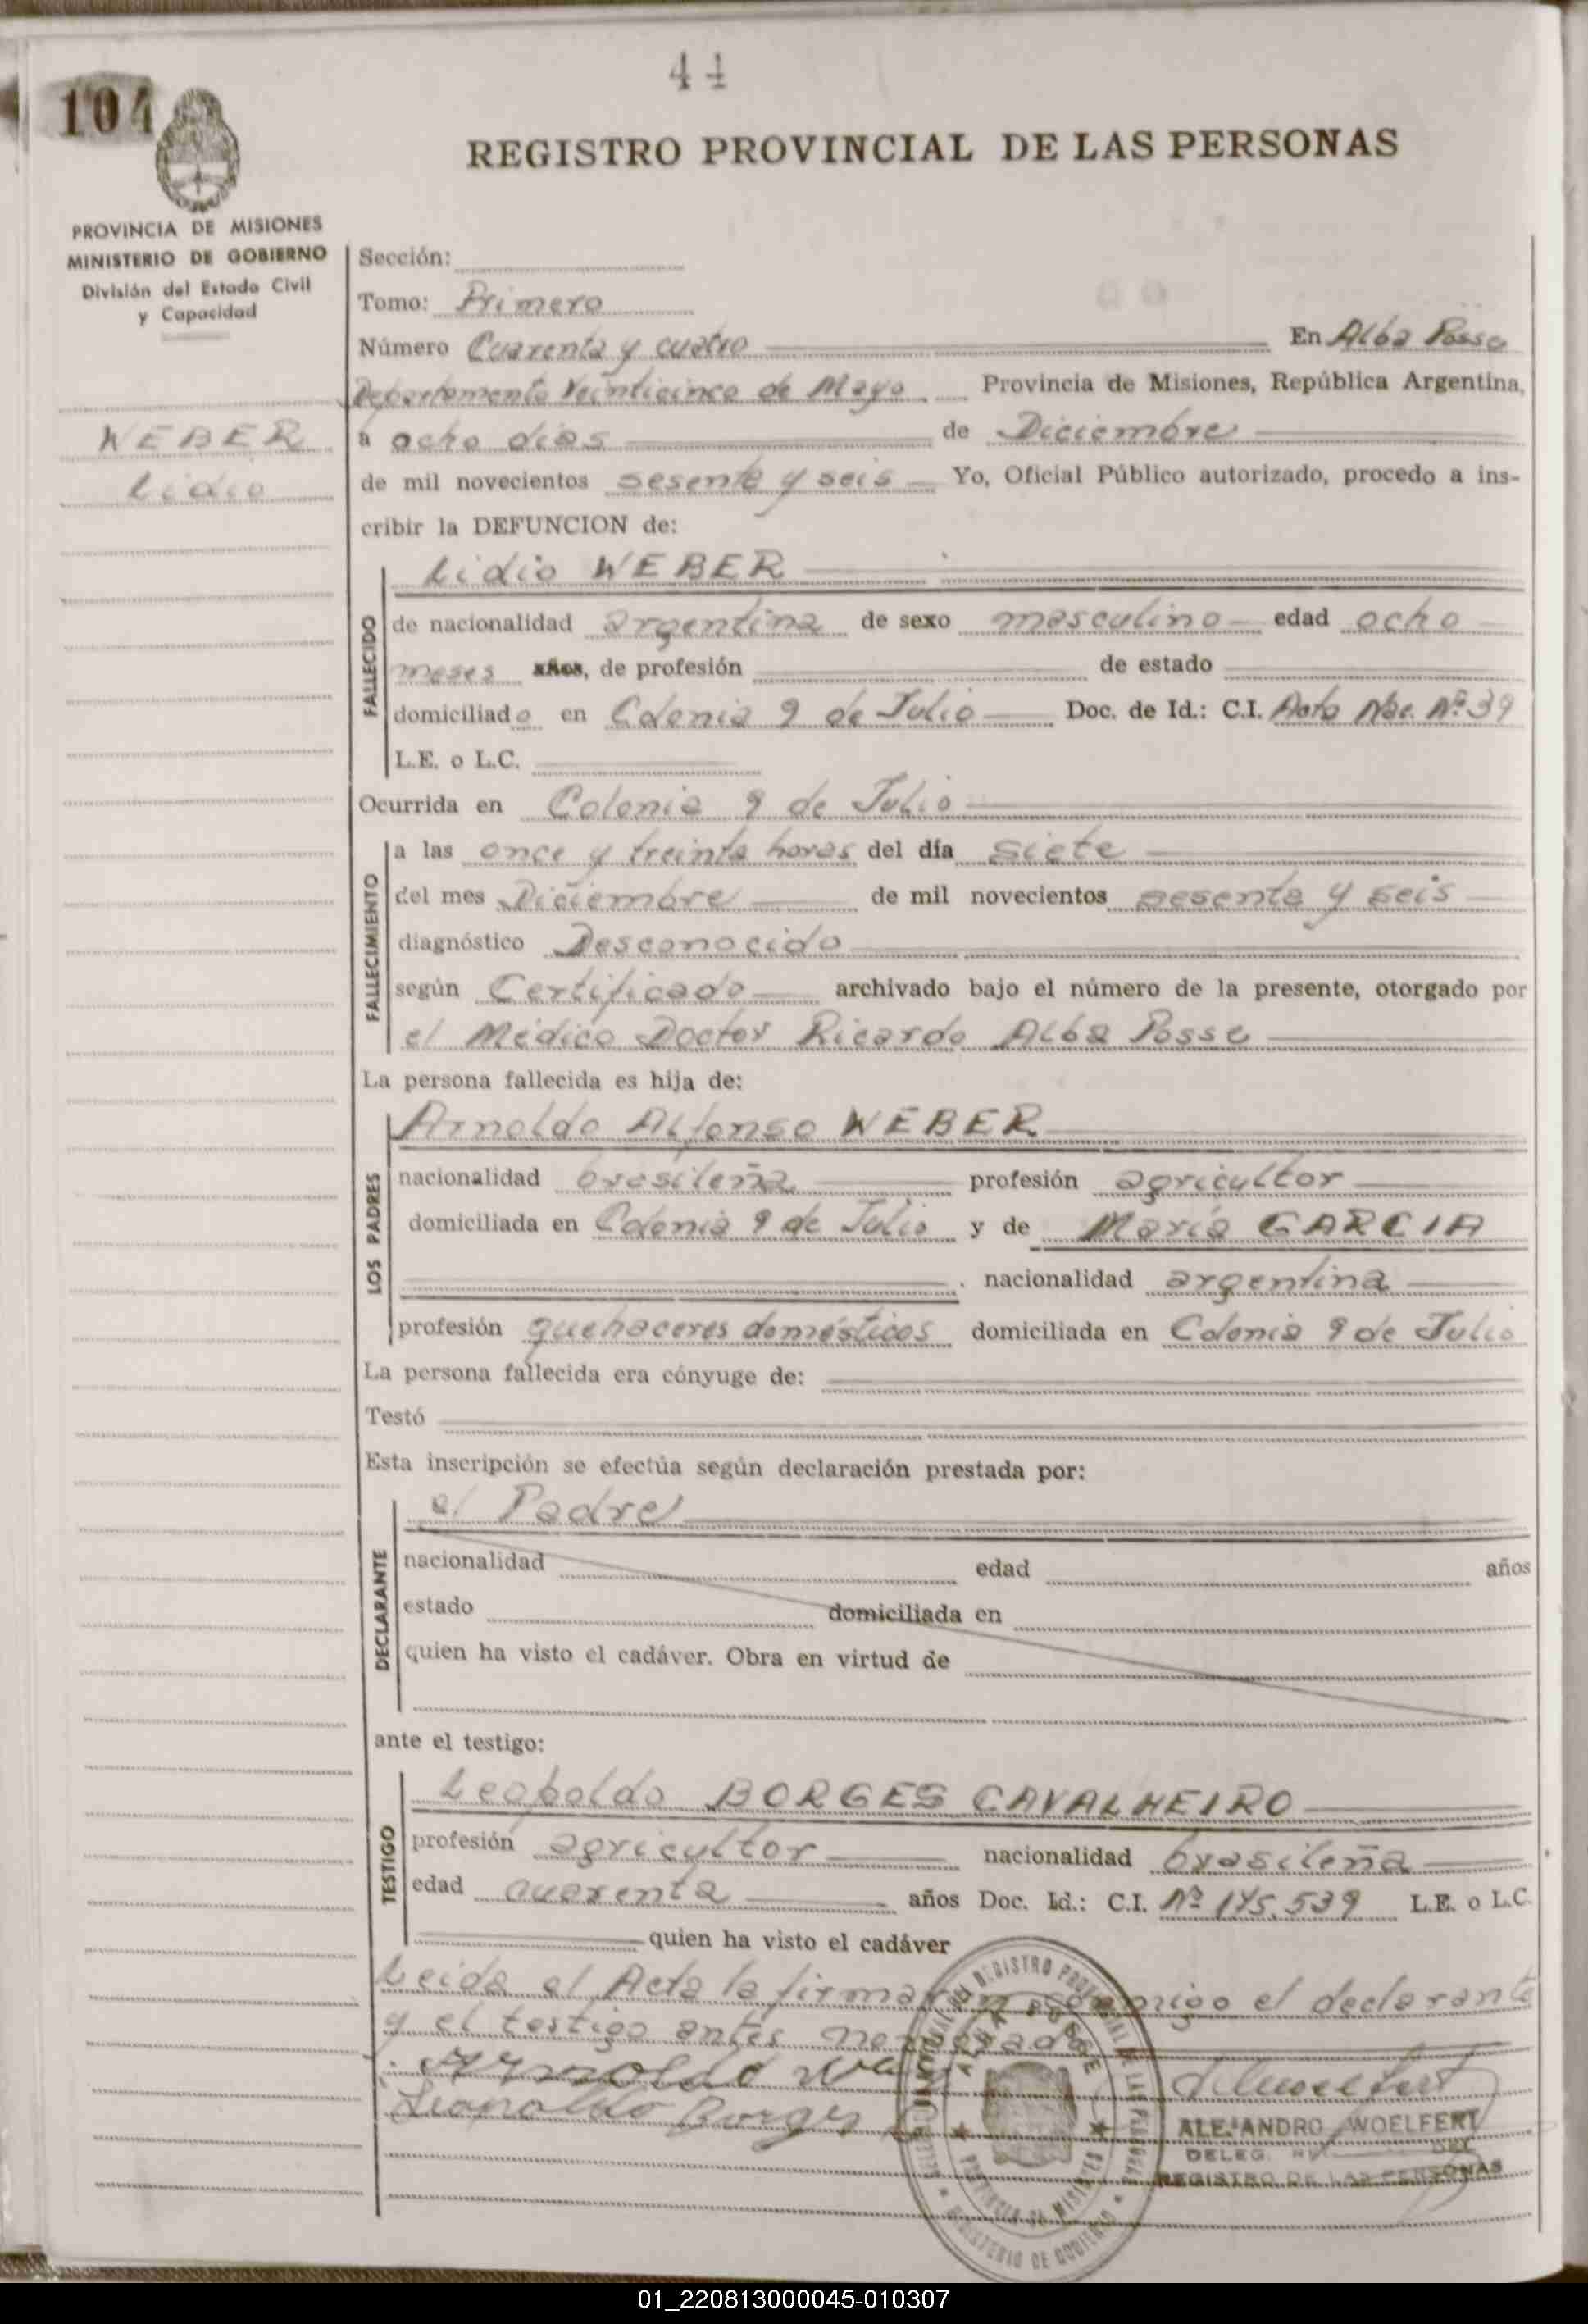 44
104
REGISTRO PROVINCIAL DE LAS PERSONAS
PROVINCIA DE MISIONES
MINISTERIO DE GOBIERNO
División del Estado Civil
y Capacidad
WEBER
Lidio
Sección:
Tomo: Primero
Número Cuarenta y cuatro En Alba Posse
Departamento Veinticinco de Mayo Provincia de Misiones, República Argentina,
a ocho días de Diciembre
de mil novecientos sesenta y seis Yo, Oficial Público autorizado, procedo a ins-
cribir la DEFUNCION de:
Lidio WEBER
FALLECIDO
de nacionalidad argentina de sexo masculino edad ocho
meses años, de profesión de estado
domiciliado en Colonia 9 de Julio Doc. de Id.: C.I. Acta Nac. Nº 39
L.E. o L.C.
Ocurrida en Colonia 9 de Julio
FALLECIMIENTO
a las once y treinta horas del día siete
del mes Diciembre de mil novecientos sesenta y seis
diagnóstico Desconocido
según Certificado archivado bajo el número de la presente, otorgado por
el Médico Doctor Ricardo Alba Posse
La persona fallecida es hija de:
Arnoldo Alfonso WEBER
LOS PADRES
nacionalidad brasileña profesión agricultor
domiciliada en Colonia 9 de Julio y de María GARCIA
nacionalidad argentina
profesión quehaceres domésticos domiciliada en Colonia 9 de Julio
La persona fallecida era cónyuge de:
Testó
Esta inscripción se efectúa según declaración prestada por:
el Padre
DECLARANTE
nacionalidad edad años
estado domiciliada en
quien ha visto el cadáver. Obra en virtud de
ante el testigo:
Leopoldo BORGES CAVALHEIRO
TESTIGO
profesión agricultor nacionalidad brasileña
edad cuarenta años Doc. Id.: C.I. Nº 145.539 L.E. o L.C.
quien ha visto el cadáver
Leida el Acta la firman conmigo el declarante
y el testigo antes nombrado
Borges
ALEJANDRO WOELFERT
DELEG.
REGISTRO DE LAS PERSONAS
ALBA POSSE
PROVINCIA DE MISIONES
MINISTERIO DE GOBIERNO
01_220813000045-010307